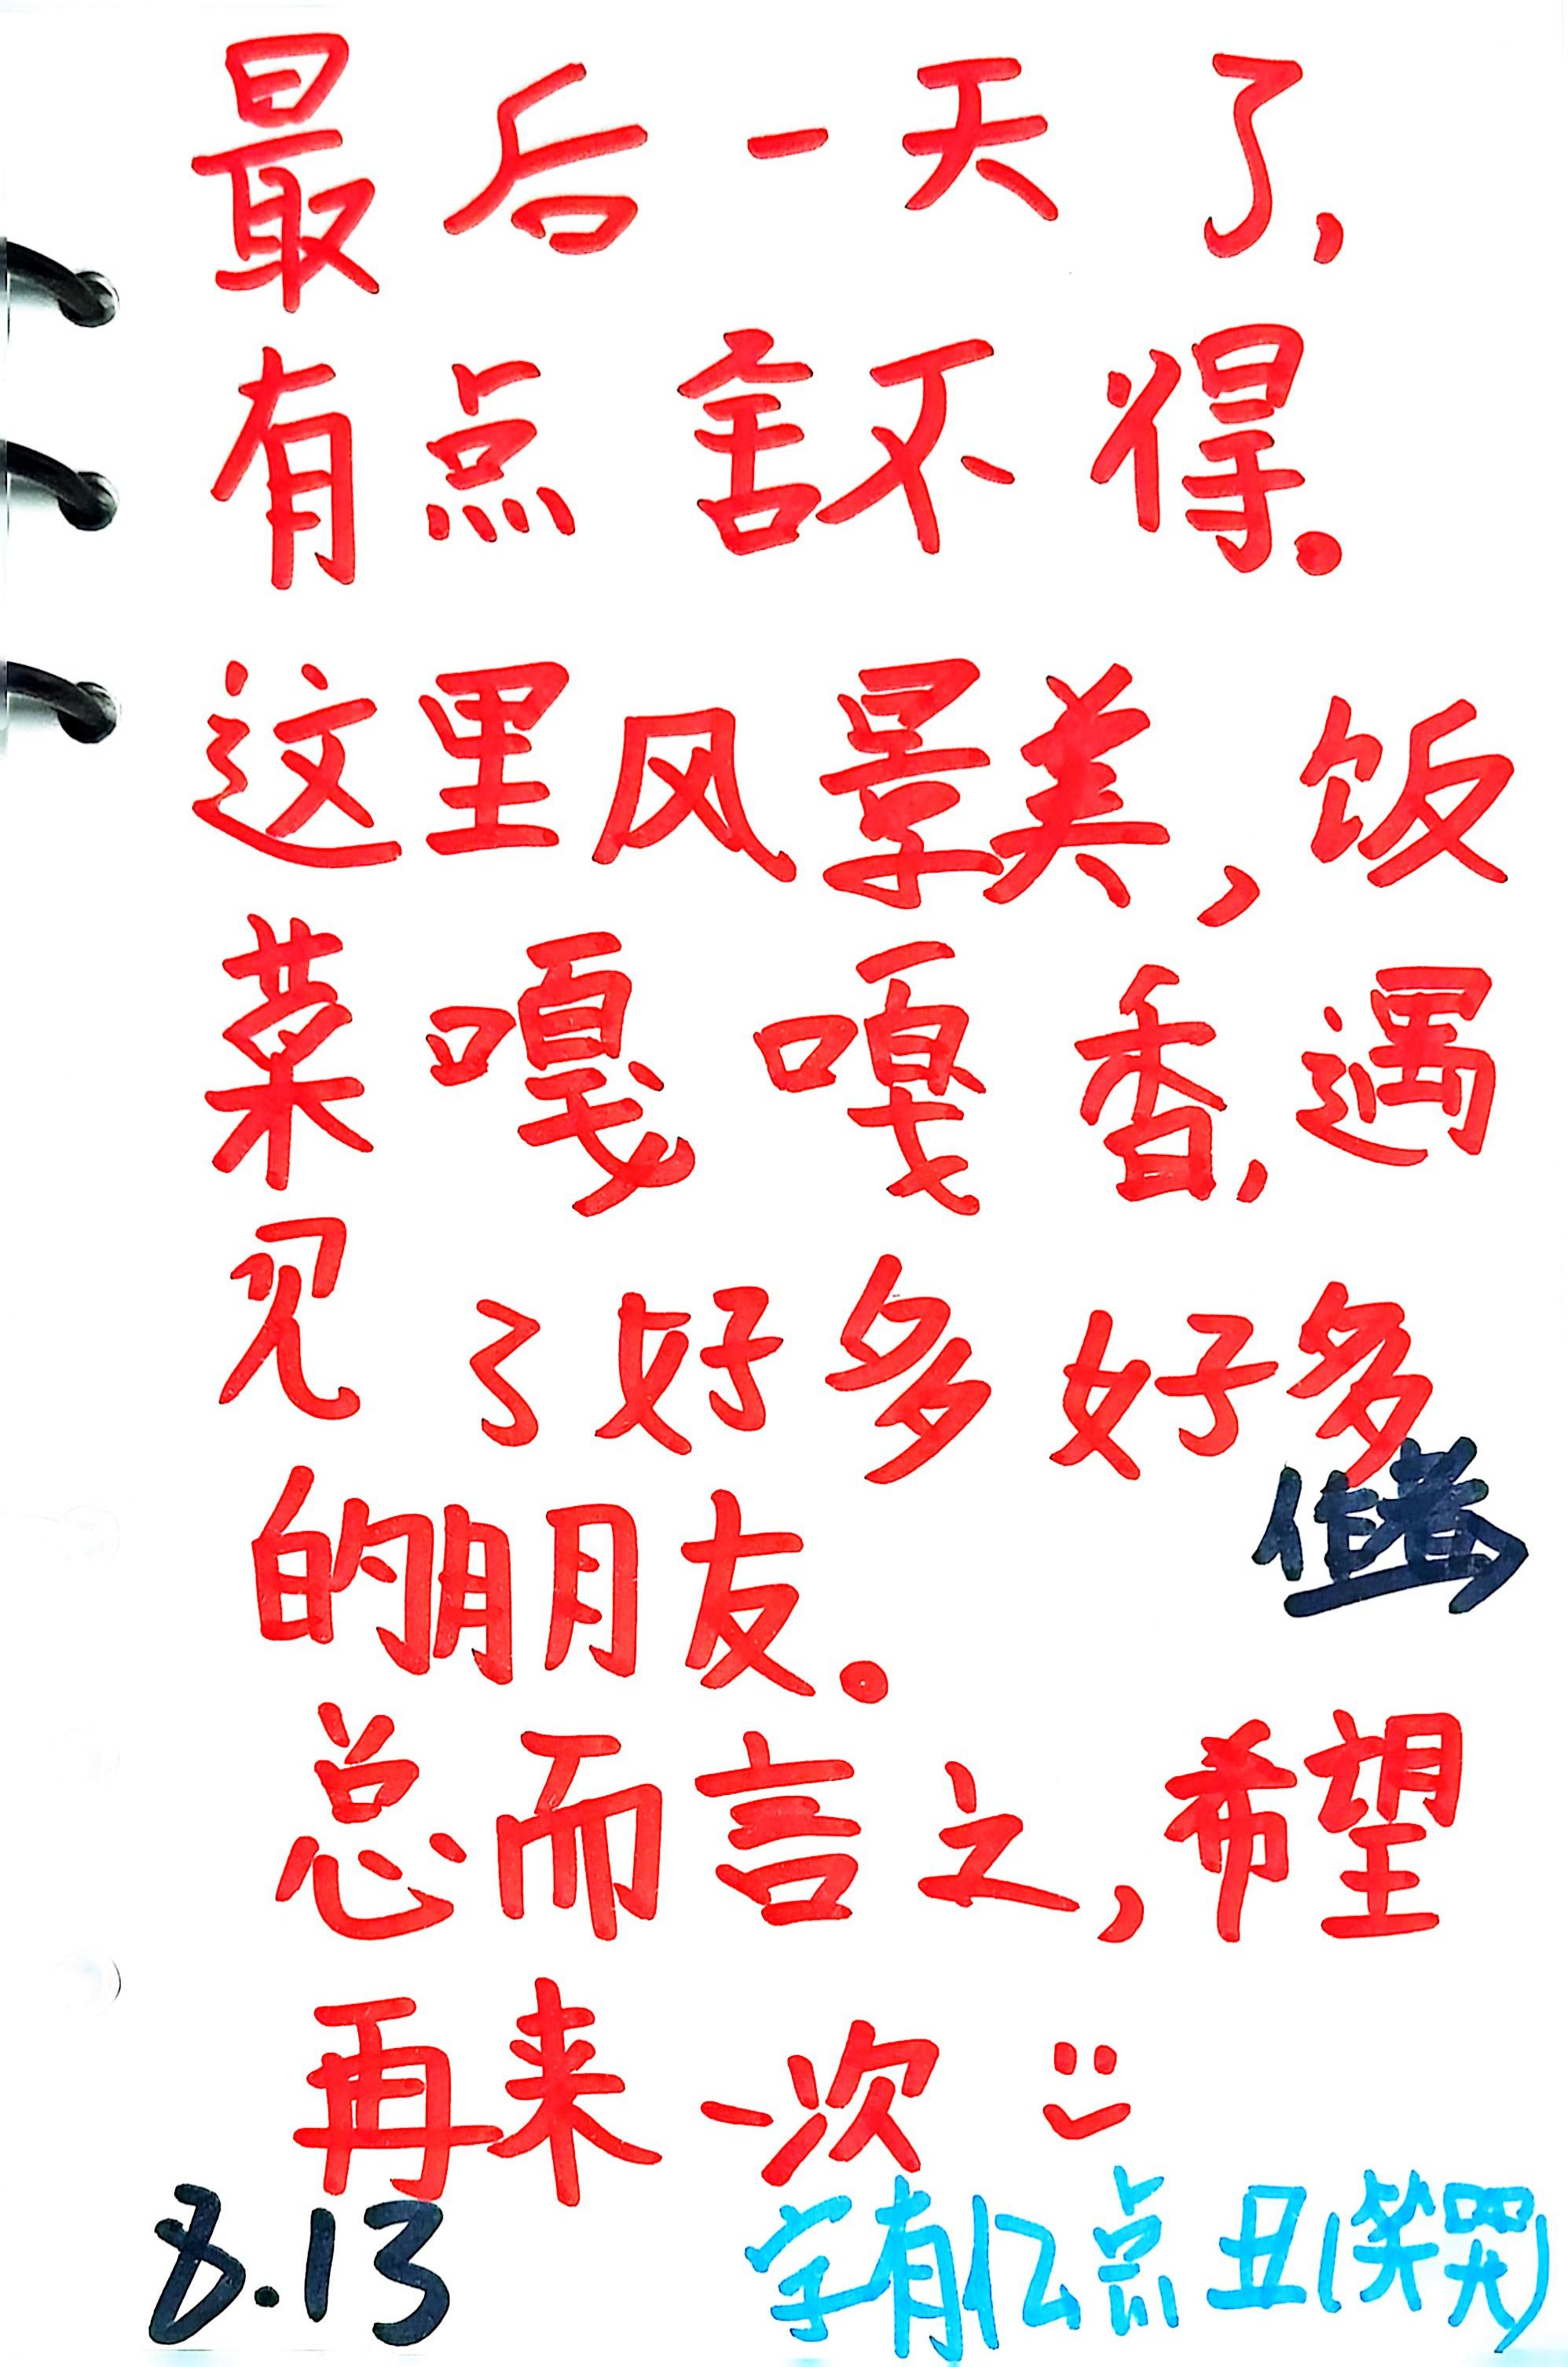 最后一天了,
有点舍不得.
这里风景美,饭
菜嘎嘎香,遇
见了好多好多
的朋友。
作者
总而言之,希望
再来一次
8.13
字有亿点丑(笑哭)